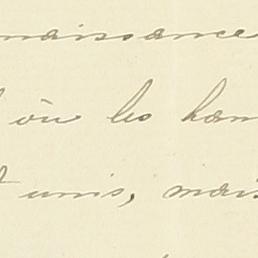 naissance
où les ham
unis, mais